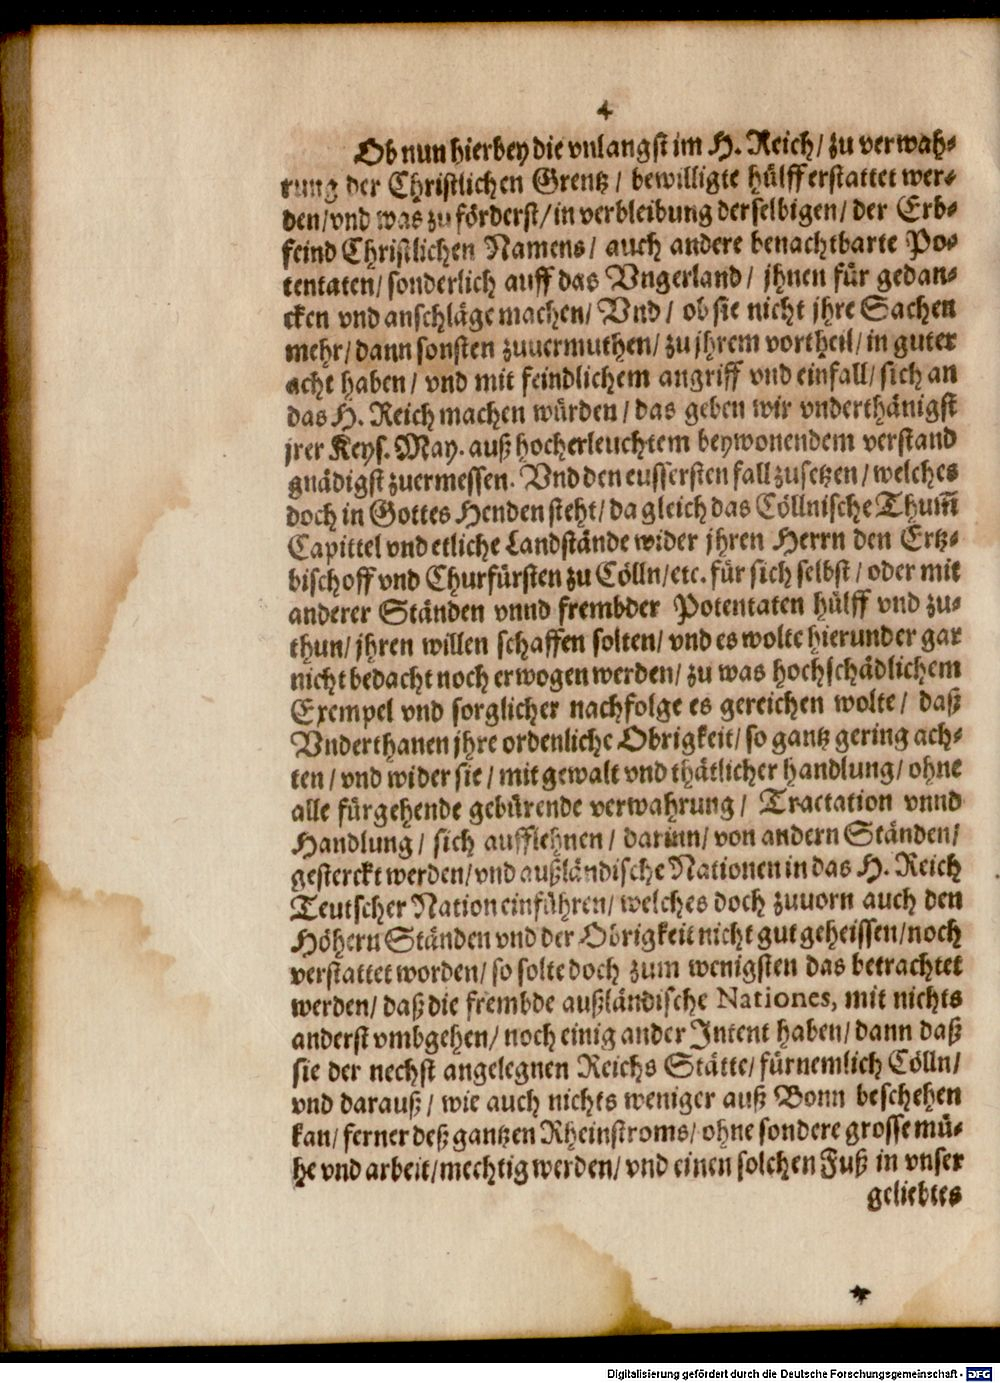 4
Ob nun hierbey die vnlangst im H. Reich/ zu verwah-
rung der Christlichen Grentz/ bewilligte hülff erstattet wer-
den/ vnd was zu förderst/ in verbleibung derselbigen/ der Erb-
feind Christlichen Namens/ auch andere benachtbarte Po-
tentaten/ sonderlich auff das Vngerland/ jhnen für gedan-
cken vnd anschläge machen/ Vnd/ ob sie nicht jhre Sachen
mehr/ dann sonsten zuuermuthen/ zu jhrem vortheil/ in guter
acht haben/ vnd mit feindlichem angriff vnd einfall/ sich an
das H. Reich machen würden/ das geben wir vnderthänigst
jrer Keys. May. auß hocherleuchtem beywonendem verstand
gnädigst zuermessen. Vnd den eussersten fall zusetzen/ welches
doch in Gottes Henden steht/ da gleich das Cöllnische Thum̃
Capittel vnd etliche Landstände wider jhren Herrn den Ertz-
bischoff vnd Churfürsten zu Cölln/ etc. für sich selbst/ oder mit
anderer Ständen vnnd frembder Potentaten hülff vnd zu-
thun/ jhren willen schaffen solten/ vnd es wolte hierunder gar
nicht bedacht noch erwogen werden/ zu was hochschädlichem
Exempel vnd sorglicher nachfolge es gereichen wolte/ daß
Vnderthanen jhre ordenliche Obrigkeit/ so gantz gering ach-
ten/ vnd wider sie/ mit gewalt vnd thätlicher handlung/ ohne
alle fürgehende gebürende verwahrung/ Tractation vnnd
Handlung/ sich aufflehnen/ darinn/ von andern Ständen/
gesterckt werden/ vnd außländische Nationen in das H. Reich
Teutscher Nation einführen/ welches doch zuuorn auch den
Höhern Ständen vnd der Obrigkeit nicht gut geheissen/ noch
verstattet worden/ so solte doch zum wenigsten das betrachtet
werden/ daß die frembde außländische Nationes, mit nichts
anderst vmbgehen/ noch einig ander Intent haben/ dann daß
sie der nechst angelegnen Reichs Stätte/ fürnemlich Cölln/
vnd darauß/ wie auch nichts weniger auß Bonn beschehen
kan/ ferner deß gantzen Rheinstroms/ ohne sondere grosse mü-
he vnd arbeit/ mechtig werden/ vnd einen solchen Fuß in vnser
geliebtes
Digitalisierung gefördert durch die Deutsche Forschungsgemeinschaft - DFG